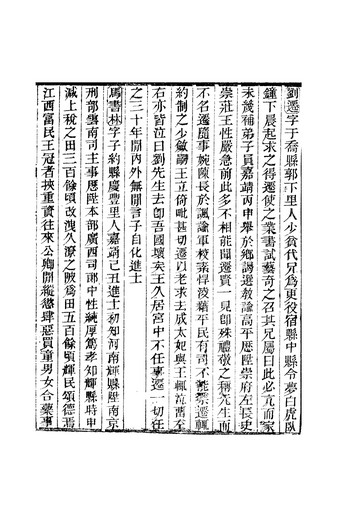 劉遷字于喬縣郭下里人少貧代兄為更役宿縣中縣令夢白虎臥
鐘下晨起求之得遷使之業書試藝奇之召其兄屬曰此必貢而家
未幾補弟子員嘉靖丙申舉於鄉選教諭高平歷陞崇府左長史
崇莊王性嚴急前此多不相能聞遷賢一見卽殊禮敬之稱先生而
不名遷隨事婉陳長於諷諭軍校素悍凌藉平民有司不能禁遷輒
約制之少戢嗣王立倚毗甚切遷以老求去成太妃與王輒流涕至
右亦皆泣曰劉先生去卽吾國壞矣王久居宮中不任事遷一切任
之三十年閒內外無閒言子自化進士
馬書林字子約縣慶豐里人嘉靖己丑進士初知河南輝縣陞南京
刑部雲南司主事歷陞本部廣西司郎中性純厚篤孝知輝縣時申
減上稅之田三百餘頃改洩久潦之陂為田五百餘頃輝民頌德焉
江西富民王冠者挾重資往來公卿閒縱慾肆惡買童男女合藥事